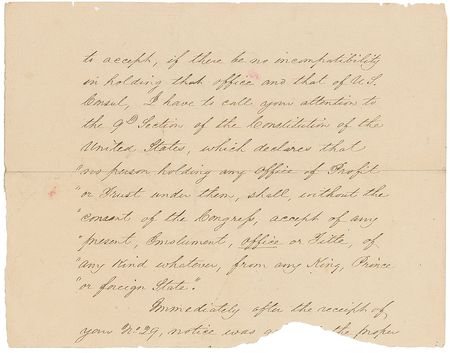 to accept, if there be no incompatibility
in holding that office and that of U.S.
Consul, I have to call your attention to
the 9th Section of the Constitution of the
United States, which declares that
"no person holding any Office of Profit
"or Trust under them, shall, without the
"consent of the Congress, accept of any
"present, Emolument, office or Title, of
"any kind whatever, from any King, Prince
"or foreign State."
Immediately after the receipt of
your No 29, notice was the proper